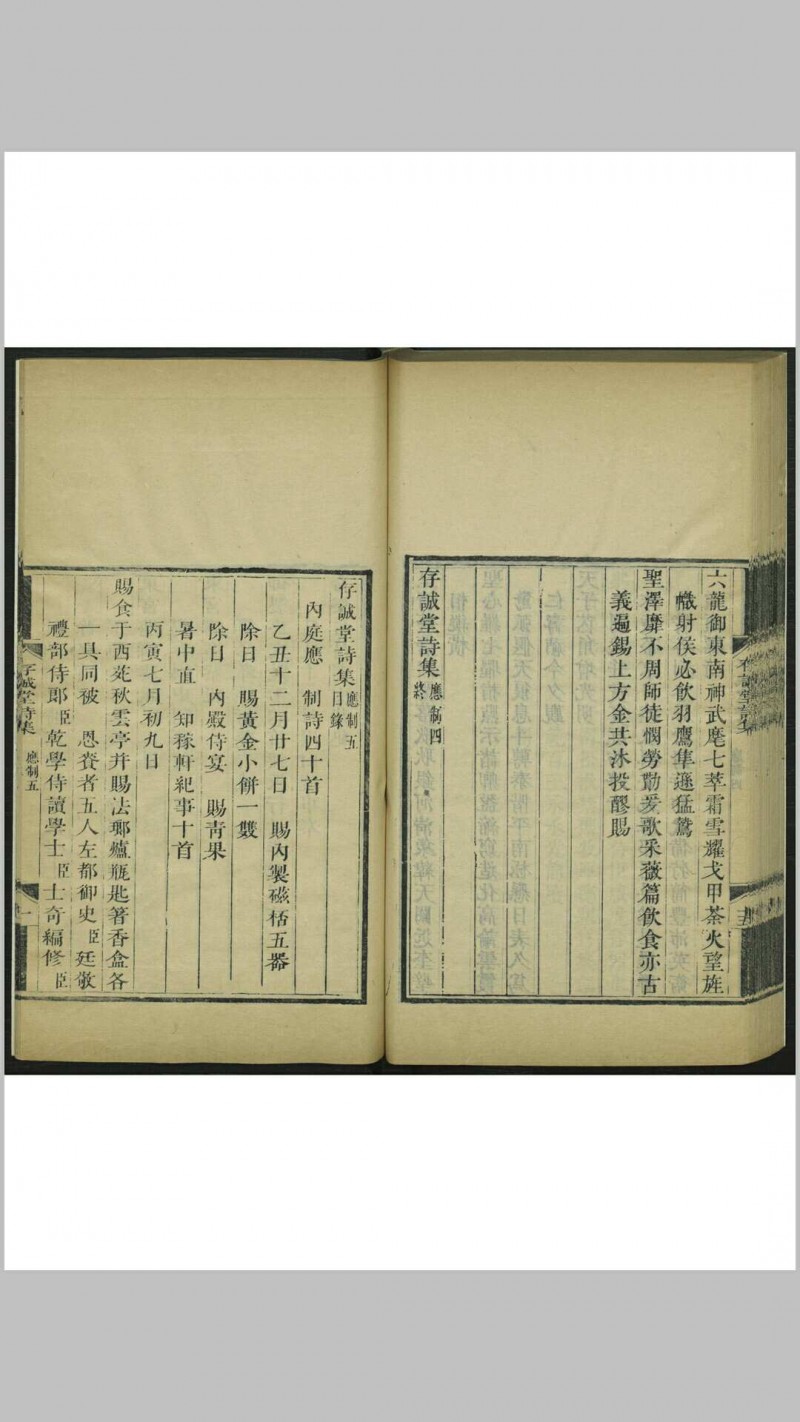 六龍御東南神武麾七萃霜雪耀戈甲荼火望旌
幟射侯必飲羽鷹隼遜猛鷙
聖澤靡不周師徒憫勞勩爰歌采薇篇飲食亦古
義遍錫上方金共沐投醪賜
存誠堂詩集應制四終
存誠堂詩集應制五目錄
內庭應　制詩四十首
乙丑十二月廿七日　賜內製磁栝五器
除日　賜黃金小餅一雙
除日　內殿侍宴　賜青果
暑中直　知稼軒紀事十首
丙寅七月初九日
賜食于西苑秋雲亭并賜法瑯爐瓶匙箸香盒各
一具同被　恩賚者五人左都御史臣廷敬
禮部侍郎臣乾學侍讀學士臣士奇編修臣
存誠堂詩集　應制五　一